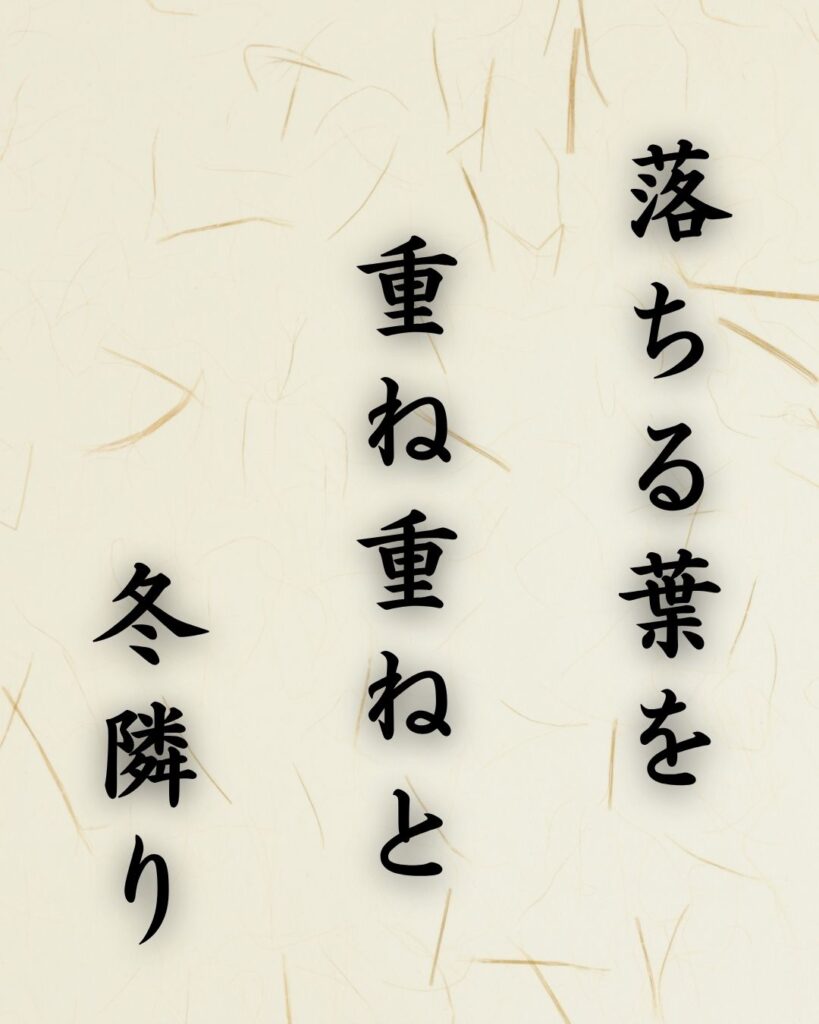 落ちる葉を
重ね重ねと
冬隣り